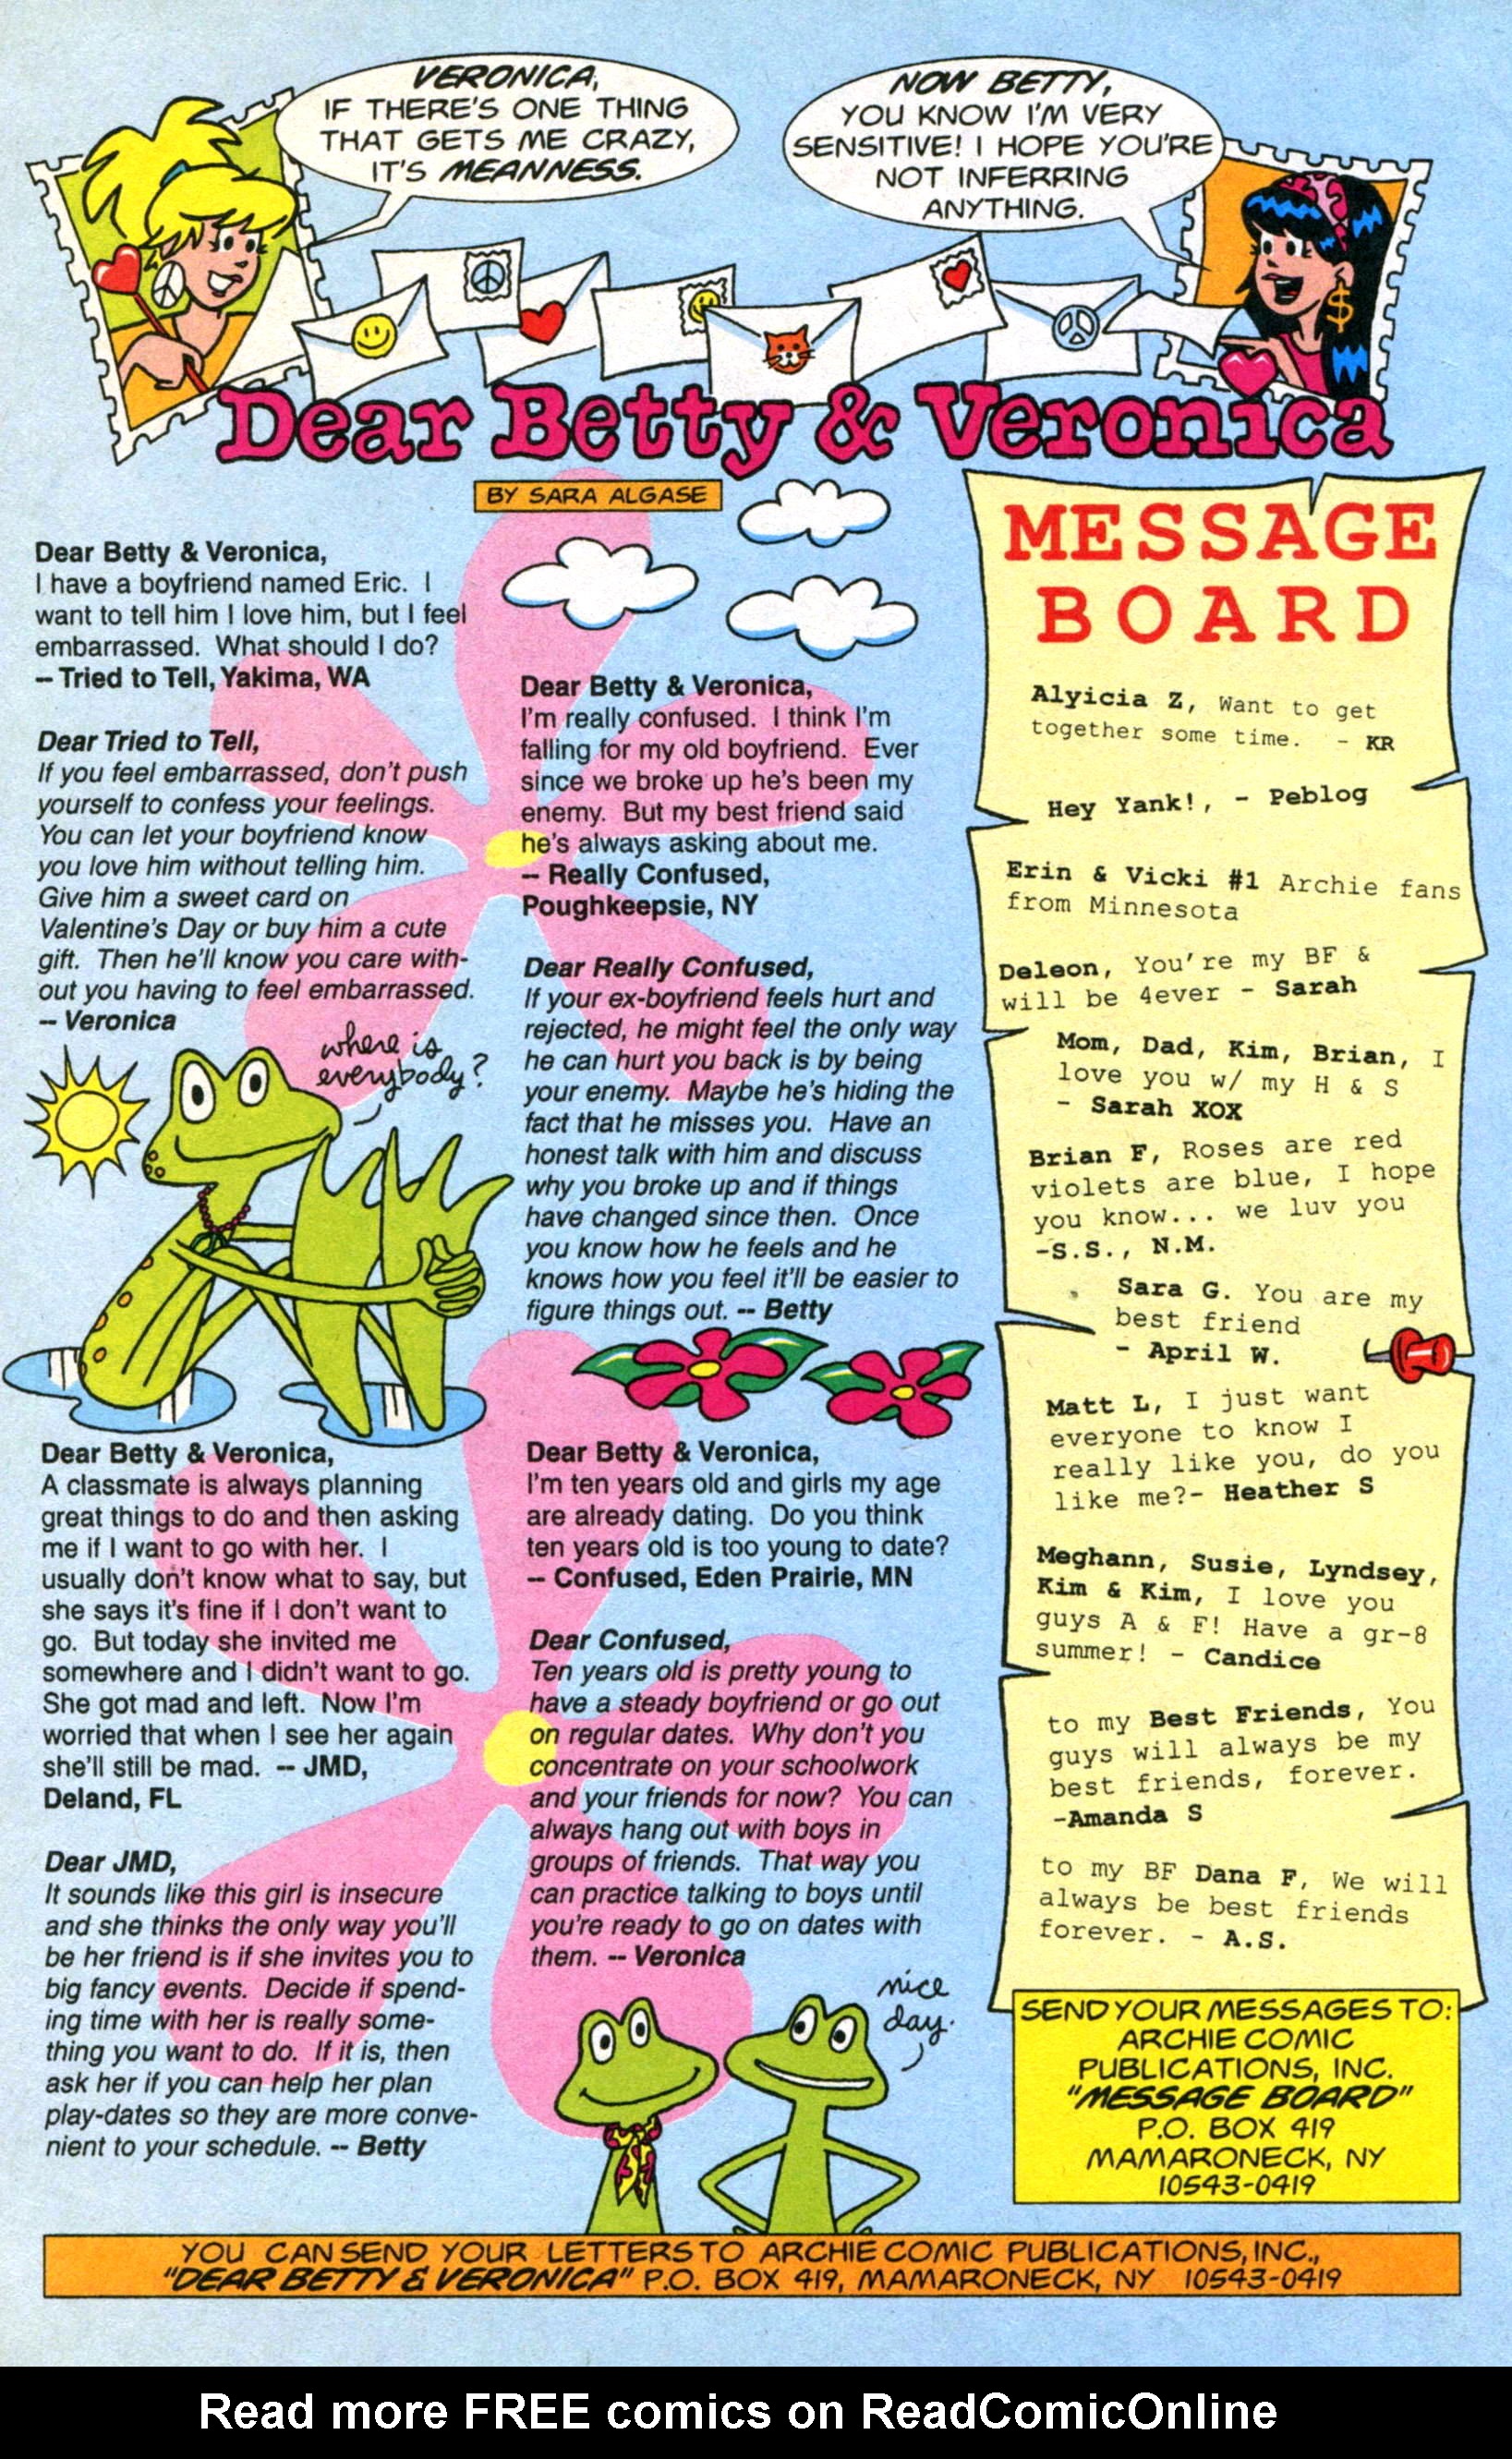 VERONICA,
IF THERE'S ONE THING
THAT GETS ME CRAZY,
IT'S MEANNESS.
NOW BETTY,
YOU KNOW I'M VERY
SENSITIVE! I HOPE YOU'RE
NOT INFERRING
ANYTHING.
Dear Betty & Veronica
BY SARA ALGASE
Dear Betty & Veronica,
I have a boyfriend named Eric. I
want to tell him I love him, but I feel
embarrassed. What should I do?
-- Tried to Tell, Yakima, WA
Dear Tried to Tell,
If you feel embarrassed, don't push
yourself to confess your feelings.
You can let your boyfriend know
you love him without telling him.
Give him a sweet card on
Valentine's Day or buy him a cute
gift. Then he'll know you care with-
out you having to feel embarrassed.
-- Veronica
where is
everybody?
Dear Betty & Veronica,
A classmate is always planning
great things to do and then asking
me if I want to go with her. I
usually don't know what to say, but
she says it's fine if I don't want to
go. But today she invited me
somewhere and I didn't want to go.
She got mad and left. Now I'm
worried that when I see her again
she'll still be mad. -- JMD,
Deland, FL
Dear JMD,
It sounds like this girl is insecure
and she thinks the only way you'll
be her friend is if she invites you to
big fancy events. Decide if spend-
ing time with her is really some-
thing you want to do. If it is, then
ask her if you can help her plan
play-dates so they are more conve-
nient to your schedule. -- Betty
Dear Betty & Veronica,
I'm really confused. I think I'm
falling for my old boyfriend. Ever
since we broke up he's been my
enemy. But my best friend said
he's always asking about me.
-- Really Confused,
Poughkeepsie, NY
Dear Really Confused,
If your ex-boyfriend feels hurt and
rejected, he might feel the only way
he can hurt you back is by being
your enemy. Maybe he's hiding the
fact that he misses you. Have an
honest talk with him and discuss
why you broke up and if things
have changed since then. Once
you know how he feels and he
knows how you feel it'll be easier to
figure things out. -- Betty
Dear Betty & Veronica,
I'm ten years old and girls my age
are already dating. Do you think
ten years old is too young to date?
-- Confused, Eden Prairie, MN
Dear Confused,
Ten years old is pretty young to
have a steady boyfriend or go out
on regular dates. Why don't you
concentrate on your schoolwork
and your friends for now? You can
always hang out with boys in
groups of friends. That way you
can practice talking to boys until
you're ready to go on dates with
them. -- Veronica
nice
day.
MESSAGE
BOARD
Alyicia Z, Want to get
together some time. - KR
Hey Yank!, - Peblog
Erin & Vicki #1 Archie fans
from Minnesota
Deleon, You're my BF &
will be 4ever - Sarah
Mom, Dad, Kim, Brian, I
love you w/ my H & S
- Sarah XOX
Brian F, Roses are red
violets are blue, I hope
you know... we luv you
-S.S., N.M.
Sara G. You are my
best friend
- April W.
Matt L, I just want
everyone to know I
really like you, do you
like me?- Heather S
Meghann, Susie, Lyndsey,
Kim & Kim, I love you
guys A & F! Have a gr-8
summer! - Candice
to my Best Friends, You
guys will always be my
best friends, forever.
-Amanda S
to my BF Dana F, We will
always be best friends
forever. - A.S.
SEND YOUR MESSAGES TO:
ARCHIE COMIC
PUBLICATIONS, INC.
"MESSAGE BOARD"
P.O. BOX 419
MAMARONECK, NY
10543-0419
YOU CAN SEND YOUR LETTERS TO ARCHIE COMIC PUBLICATIONS, INC.,
"DEAR BETTY & VERONICA" P.O. BOX 419, MAMARONECK, NY 10543-0419
Read more FREE comics on ReadComicOnline